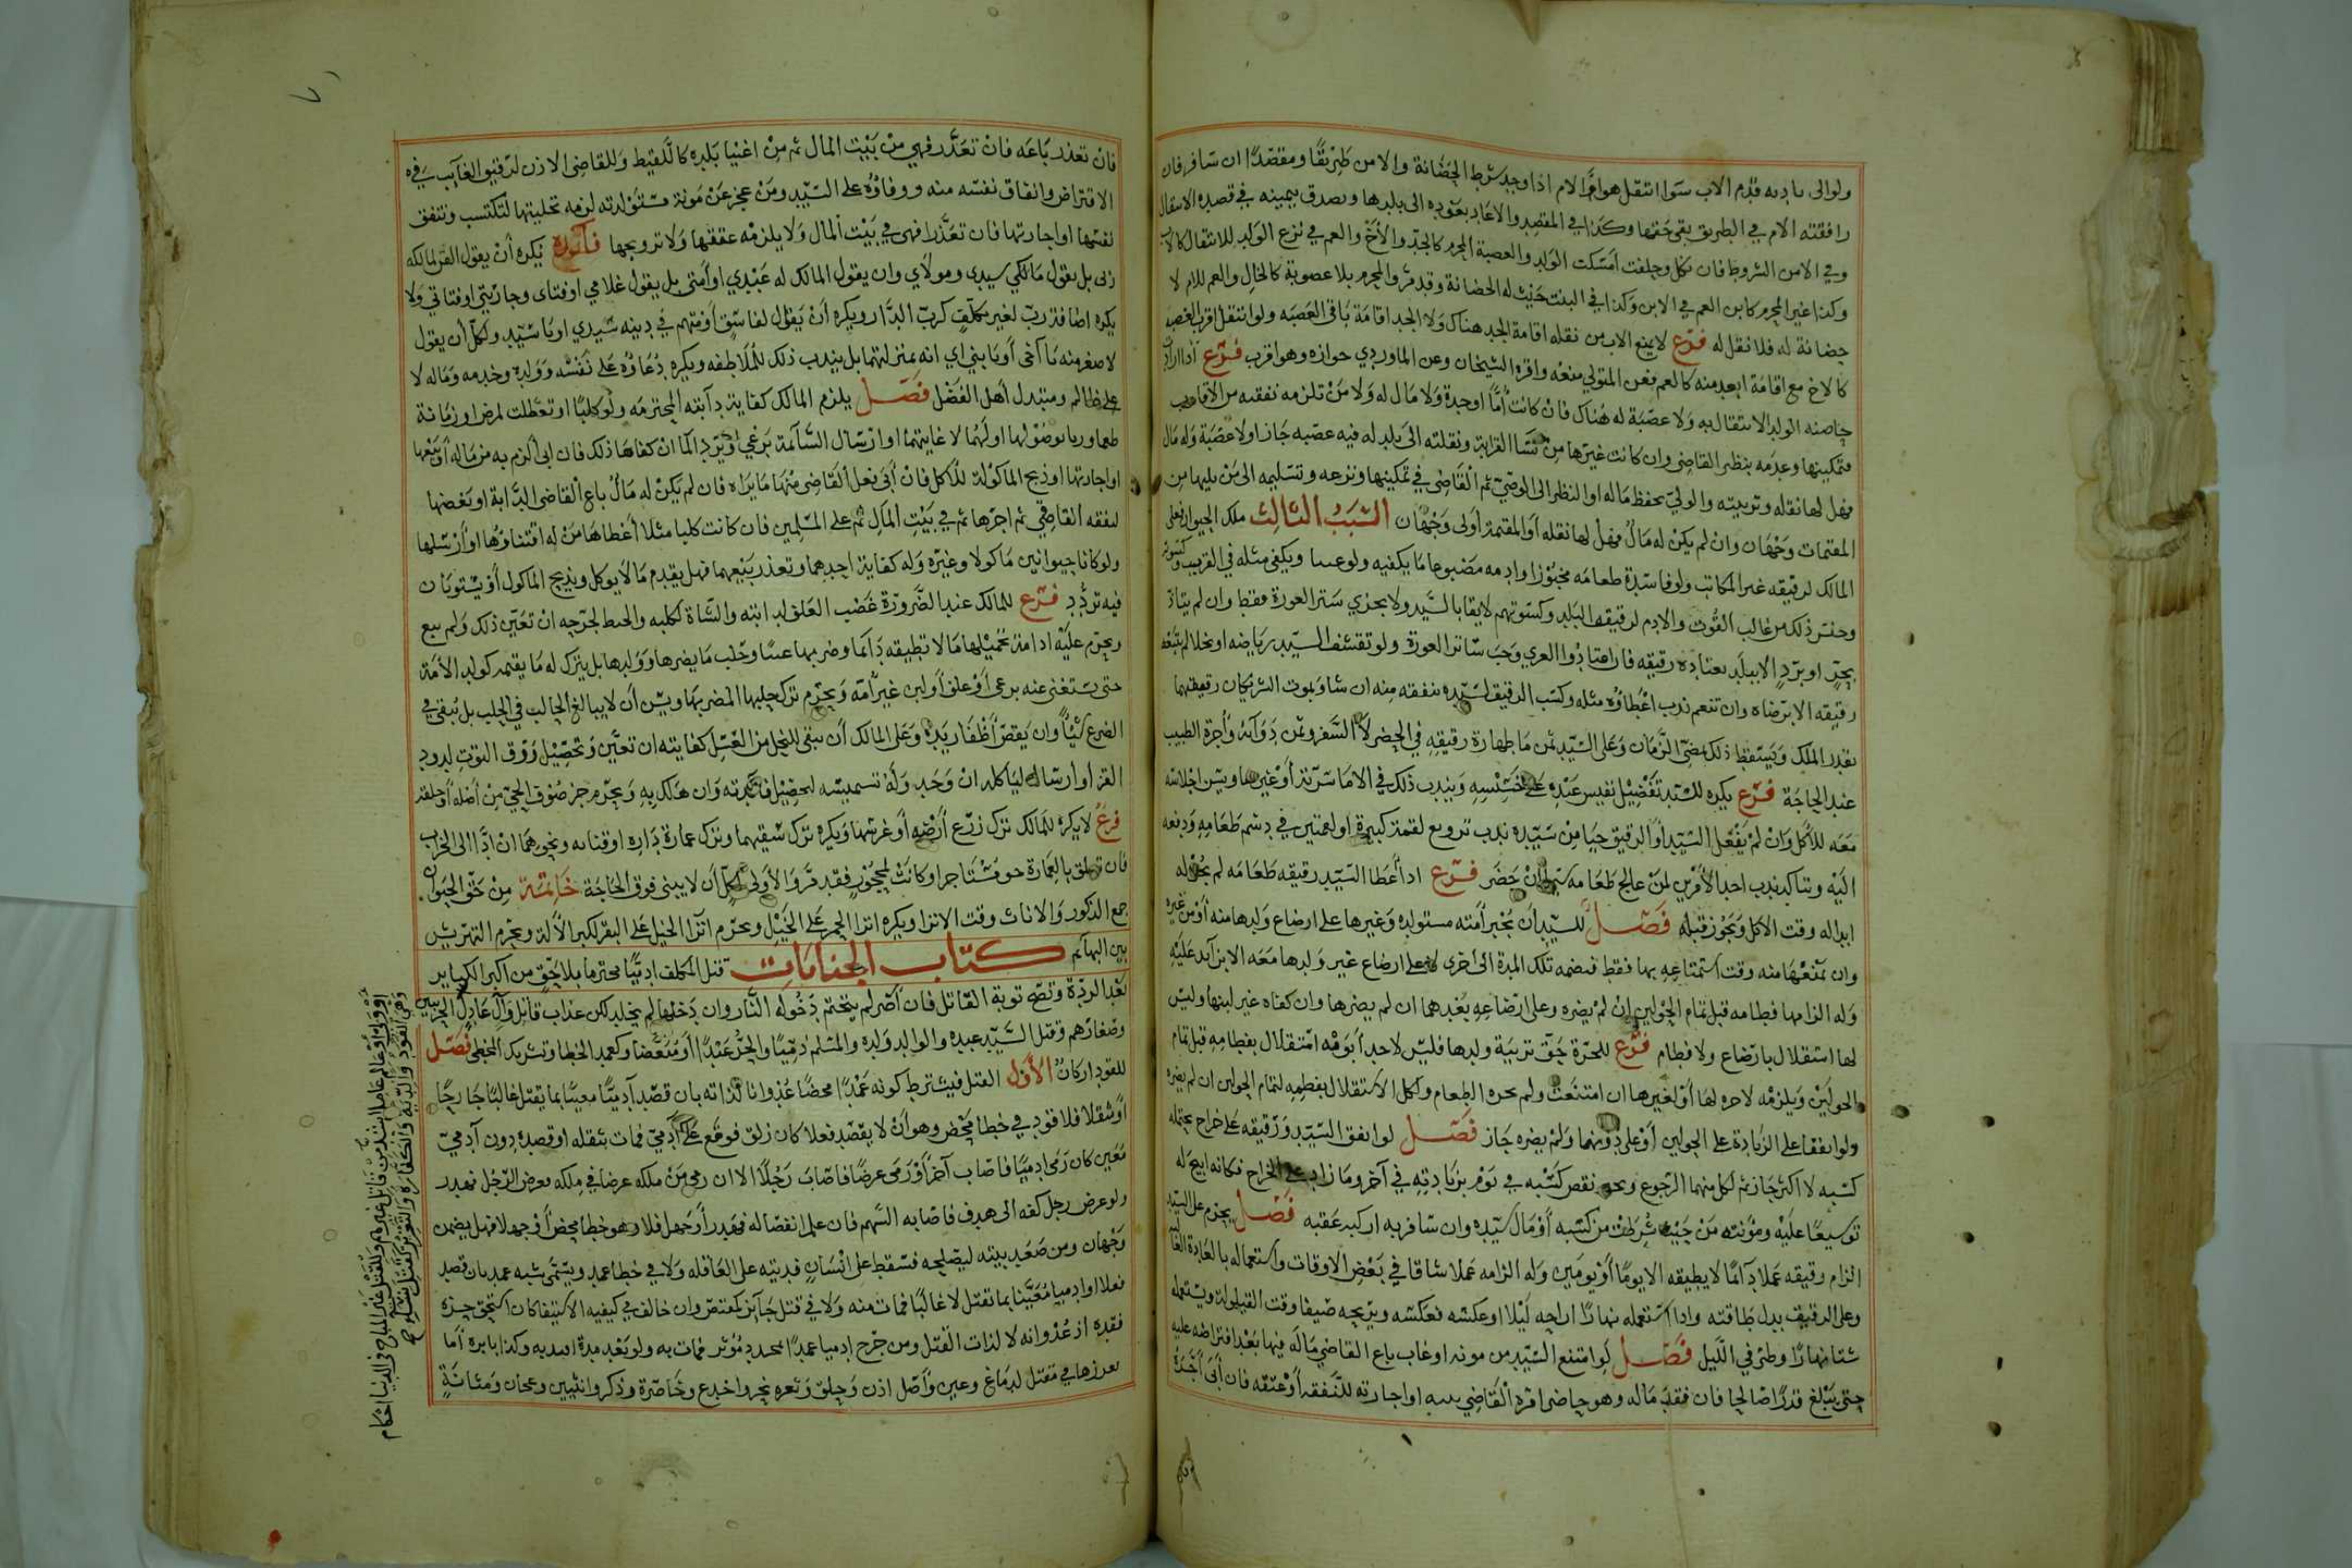 ولوالى بادية قدم الاب سوا انتقل هو او الام اذا وجد شرط الحضانة والامن طريقا ومقصدا ان سافر فان
رافقته الام في الطريق بقى حقها وكذا في المقصد والا عاد بعوده الى بلدها وصدق بيمينه في قصده الانتقال
وفي الامن الشروط فان نكل وحلفت امسكت الولد والعصبة المحرم كالجد والاخ والعم في نزع الولد للانتقال كالاب
وكذا غير المحرم كابن العم في الابن وكذا في البنت حيث له الحضانة وقد مر والمحرم بلا عصوبة كالخال والعم للام لا
حضانة له فلا نقل له فرع لا يمنع الاب من نقله اقامة الجد هناك ولا الجد اقامة باقي العصبه ولو انتقل اقرب العصبة
كالاخ مع اقامة ابعد منه كالعم فعن المتولي منعه واقره الشيخان وعن الماوردي جوازه وهو اقرب فرع اذا اراد
حاضنه الولد الانتقال به ولا عصبة له هناك فان كانت اما او جدة ولا مال له ولا من تلزمه نفقته من الاقارب
فتمكينها وعدمه بنظر القاضي وان كانت غيرها من نسا القرابة ونقلته الى بلد له فيه عصبه جاز او لا عصبة وله مال
فهل لها نقله وتربيته والولي بحفظ ماله او النظر الى الوصي ثم القاضي في تمكينها ونزعه وتسليمه الى من يليها من
المقيمات وجهان وان لم يكن له مال فهل لها نقله او المقيمة اولى وجهان السبب الثالث ملك الحيوان فعلى
المالك لرقيقه غير المكاتب ولو فاسدة طعامه مخبوزا وادمه مصنوعا ما يكفيه ولو ويكفي مثله في القريب وكسوته
وجنس ذلك من غالب القوت والادم لرقيق البلد وكسوتهم لايقا بالسيد ولا يجزي ستر العورة فقط وان لم يتاذ
بحر او برد الا ببلد يعتاده رقيقه فان اعتادوا العري وجب ساتر العورة ولو تقشف السيد رياضه او بخلا لم يتبعه
رقيقه الا برضاه وان تنعم ندب اعطاؤه مثله وكسب الرقيق لسيده ينفقه منه ان شا ويمون الشريكان رقيقهما
بقدر الملك ويسقط ذلك بمضي الزمان وعلى السيد ثمن ما طهارة رقيقه في الحضر لا السفر وثمن دوائه واجرة الطبيب
عند الحاجة فرع يكره للسيد تفضيل نفيس عبيده على خسيسه ويندب ذلك في الاما سرية او غيرها ويسن اجلاسه
معه للاكل وان لم يفعل السيد او الرقيق حيا من سيده ندب ترويغ لقمة كبيرة او لقمتين في دسم طعامه ودفعه
اليه ويتاكد ندب احد الامرين لمن عالج طعامه سيما ان حضر فرع اذا اعطا السيد رقيقه طعامه لم يجز له
ابداله وقت الاكل ويجوز قبله فصل للسيد ان يجبر امته مستولده وغيرها على ارضاع ولدها منه او من غيره
وان يمنعها منه وقت استمتاعه بها فقط فيضعه تلك المدة الى اخرى لا على ارضاع غير ولدها معه الا بزايد عليه
وله الزامها فطامه قبل تمام الحولين ان لم يضره وعلى ارضاعه بعدهما ان لم يضرها وان كفاه غير لبنها وليس
لها استقلال بارضاع ولا فطام فرع للحرة حق تربية ولدها فليس لاحد ابويه استقلال بفطامه قبل تمام
الحولين ويلزمه الاجره لها او لغيرها ان امتنعت ولم يجزه الطعام ولكل الاستقلال بفطمه لتمام الحولين ان لم يضره
ولو اتفقا على الزيادة على الحولين او على دونهما ولم يضره جاز فصل لو اتفق السيد ورقيقه على خراج يحتمله
كسبه لا اكثر جاز ثم لكل منهما الرجوع ويجبر نقص كسبه في يوم بزيادته في آخر وما زاد على الخراج فكانه ابيح له
توسيعا عليه ومؤنته من حيث شرطت من كسبه او مال سيده وان سافر به اركبه عقبه فصل يحرم على السيد
الزام رقيقه عملا دائما لا يطيقه الا يوما او يومين وله الزامه عملا شاقا في بعض الاوقات واستعماله بالعادة الغالبة
وعلى الرقيق بذل طاقته واذا استعمله نهارا اراحه ليلا او عكسه فعكسه ويريحه صيفا وقت القيلولة ويستعمله
شتا نهارا وطرفي الليل فصل لو امتنع السيد من مونه او غاب باع القاضي ماله فيها بعد اقتراضه عليه
حتى يبلغ قدرا صالحا فان فقد ماله وهو حاضر امره القاضي ببيعه او اجارته للنفقة او عتقه فان ابى اجره
فان تعذر باعه فان تعذر فهي من بيت المال ثم من اغنيا بلده كاللقيط وللقاضي الاذن لرقيق الغايب في
الاقتراض وانفاق نفسه منه ووفاؤه على السيد ومن عجز عن مونة مستولدته لزمه تخليتها لتكتسب وتنفق
نفسها او اجارتها فان تعذرا فهي في بيت المال ولا يلزمه عتقها ولا تزويجها فائدة يكره ان يقول القن لمالكه
ربي بل يقول مالكي سيدي ومولاي وان يقول المالك له عبدي او امتي بل يقول غلامي او فتاي وجاريتي او فتاتي ولا
يكره اضافة رب لغير مكلف كرب الدار ويكره ان يقول لفاسق او متهم في دينه سيدي او يا سيد ولكل ان يقول
لاصغر منه يا اخي او يا بني اي انه بمنزلتهما بل يندب ذلك للملاطفه ويكره دعاؤه على نفسه وولده وخدمه وماله لا
على ظالم ومتبدل اهل الفضل فصل يلزم المالك كفاية دابته المحترمه ولو كلبا او تعطلت لمرض او زمانة
طعما وريا بوصول لها او لهما لا غايتهما او ارسال السائمة برعي وترد الما ان كفاها ذلك فان ابى الزم به من ماله او بيعها
او اجارتها او ذبح الماكولة للاكل فان ابى فعل القاضي منها ما يراه فان لم يكن له مال باع القاضي الدابة او بعضها
لنفقه القاضي ثم اجرها ثم في بيت المال ثم على المسلمين فان كانت كلبا مثلا اعطاها من له اقتناؤها او ارسلها
ولو كانا حيوانين ماكولا وغيره وله كفاية احدهما وتعذر بيعهما فهل يقدم ما لا يوكل ويذبح الماكول او يستويان
فيه تردد فرع للمالك عند الضرورة غصب العلف لدابته والشاة لكلبه والخيط لجرحه ان تعين ذلك ولم يبع
ويحرم عليه ادامة تحميلها ما لا تطيقه دائما وضربها عبثا وحلب ما يضرها وولدها بل يترك له ما يقيمه كولد الامة
حتى يستغني عنه برعي او علف او لبن غير امه ويحرم ترك حلبها المضر بها ويسن ان لا يبالغ الحالب في الحلب بل يبقي في
الضرع شيئا وان يقص اظفار يديه وعلى المالك ان يبقي للنحل من العسل كفايته ان تعين وتحصيل ورق التوت لدود
القز او ارساله لياكله ان وجد وله تشميسه لتحصيل فائدته وان هلك به ويحرم جز صوف الحي من اصله او حلقه
فرع لا يكره للمالك ترك زرع ارضه او غرسها ويكره ترك سقيهما وترك عمارة داره او قناته ونحوهما ان ادى الى الخراب
فان تعلق بالعمارة حق مستاجر او كانت لمحجور فقد مر والاولى لكل ان لا يبنى فوق الحاجة خاتمة من حق الحيوان
جمع الذكور والاناث وقت الانزا ويكره انزا الحمر على الخيل ويحرم انزا الخيل على البقر لكبر الالة ويحرم التهريش
بين البهائم كتاب الجنايات قتل المكلف ادميا محترما بلا حق من اكبر الكبائر
بعد الردة وتصح توبة القاتل فان اصر لم يتحتم دخوله النار وان دخلها لم يخلد لكن عذاب قاتل وال عادل
وصغارهم وقتل السيد عبده والوالد ولده والمسلم ذميا والحر عبدا او مبعضا وكعمد الخطا وشريك المخطئ فصل
للقود اركان الاول القتل فيشترط كونه عمدا محضا عدوانا لذاته بان قصد آدميا معينا بما يقتل غالبا جارحا
او مثقلا فلا قود في خطا محض وهو ان لا يقصد فعلا كان زلق فوقع على آدمي فمات بثقله او قصده دون آدمي
معين كان رمى ادميا فاصاب آخر او رمى عرضا فاصاب رجلا الا ان رمى من ملكه عرضا في ملكه فعرض الرجل فهدر
ولو عرض رجل كفه الى هدف فاصابه السهم فان علم انفصاله فهدر او جهل فلا وهو خطا محض او جهلا فهل يضمن
وجهان ومن صعد بيته ليصلحه فسقط على انسان فديته على العاقله ولا في خطا عمد ويسمى شبه عمد بان قصد
فعلا او ادميا معينا بما تقتل لا غالبا فمات منه ولا في قتل جائز كمقتص وان خالف في كيفيه الاستيفا كان استحق حز
فقده اذ عدوانه لا لذات القتل ومن جرح ادميا عمدا بمحدد مؤثر فمات به ولو بعد مدة افيد به وكذا بابرة اما
بغرزها في مقتل لدماغ وعين واصل اذن وحلق وثغره نحر واخدع وخاصرة وذكر وانثيين وعجان ومثانة